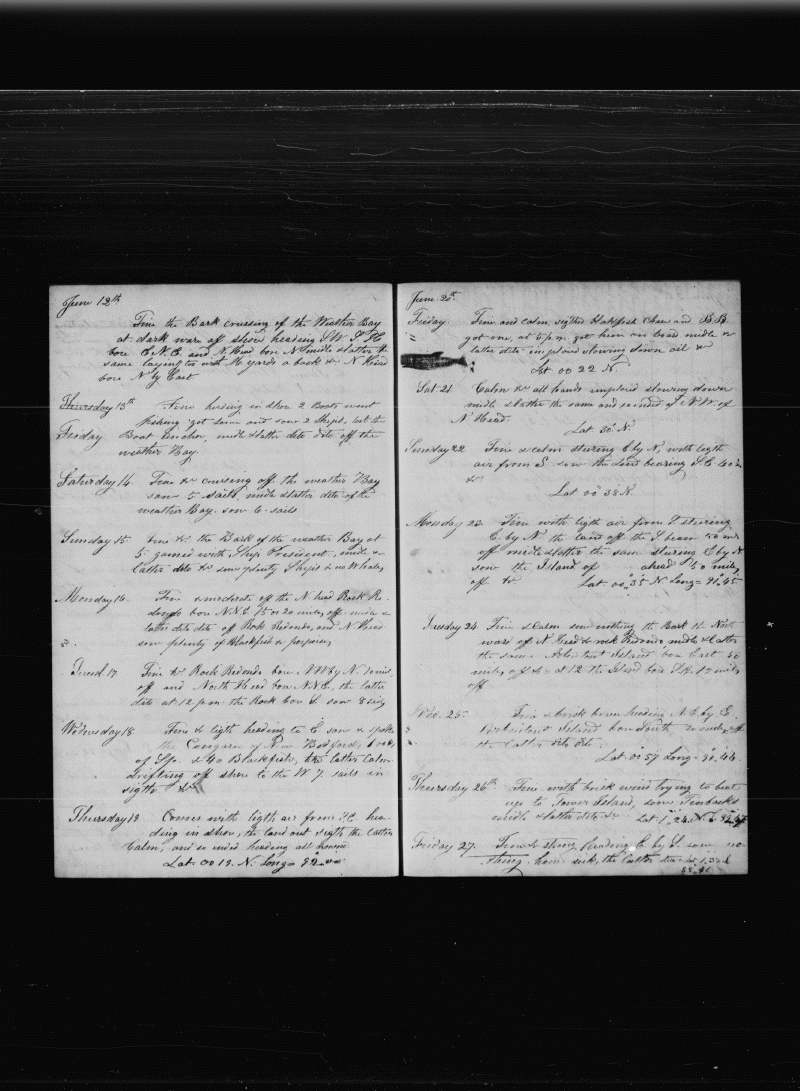 June 12th
Fine the Bark cruising of the Weather Bay
at dark ware off shore heading SW. S. H
bore E.N.E. and N. Head bore N midle & latter the
same laying to with M. yards a back &c N. Head
bore N by East
Thursday 13th Fine heading in shore 2 Boats went
fishing got some and saw 2 Ships, lost the
Friday Boat anchor, midle & latter dito dito off the
weather Bay.
Saturday 14. Fine &c cruising off the weather Bay
saw 5 sails, midle & latter dito of the
weather Bay. saw 6 sails
Sunday 15 fine &c the Bark of the weather Bay at
5 gamed with Ship President, midle &
latter dito &c saw plenty Ships & no Whales
Monday 16. Fine & moderate off the N. head Rock Re-
dondo bore N.N.E. 15 or 20 miles off midle &
latter dito dito off Rock Redondo, and N Head
saw plenty of Blackfish & porpoises
Tuesd 17 Fine &c Rock Redondo bore NW by N. 10 miles
off and North Head bore N.N.E., the latter
dito at 12 p.m. the Rock bore E. saw 8 sails
Wednesday 18 Fine & ligth heading to E. saw & spoke
the Congaree of New Bedford,
of Sp. & 40 Blackfish, the latter Calm
drifting off shore to the W 7 sails in
sigth &c
Thursday 19 Comes with ligth air from hea-
ding in shore, the land out sigth the latter
Calm, and so ended heading all
Lat 00 19. N. Long= 92..00
June 20th
Friday. Fine and calm, sigthed Blakfish and B.B.
got one, at 5 p.m. got him on board midle &
latter dito imploied stowing down oil &c
Lat 00 22 N
Sat 21 Calm &c all hands imploied stowing down
midle & latter the same and ended of N.W. of
N Head.
Lat 30 N.
Sunday 22 Fine & calm steering E by N, with ligth
air from S. saw the Land bearing S.E. 40 m
&c
Lat 00 38 N.
Monday 23. Fine with ligth air from S steering
E. by N. the land off the S beam 50 m
off midle & latter the same steering E by N
saw the Island of ahead 50 miles
off &c Lat 00..35 N Long= 91..45
Tuesday 24 Fine & Calm saw nothing the Bark to North
ward of N Head & rock Redondo midle & latter
the same. Island bore East 50
miles off &c at 12 the Island bore S.E. 12 miles
off
Wed. 25. Fine & brick breeze heading N.E. by E.
Island bore South 20 miles off
the latter dito dito.
Lat 0 57 Long= 90..44
Thursday 26th Fine with brick wind trying to beat
up to Tower Island, saw Finbacks
midle & latter dito &c Lat 1..24. N.
Friday 27. Fine & strong heading E. by S. saw no-
thing. the latter